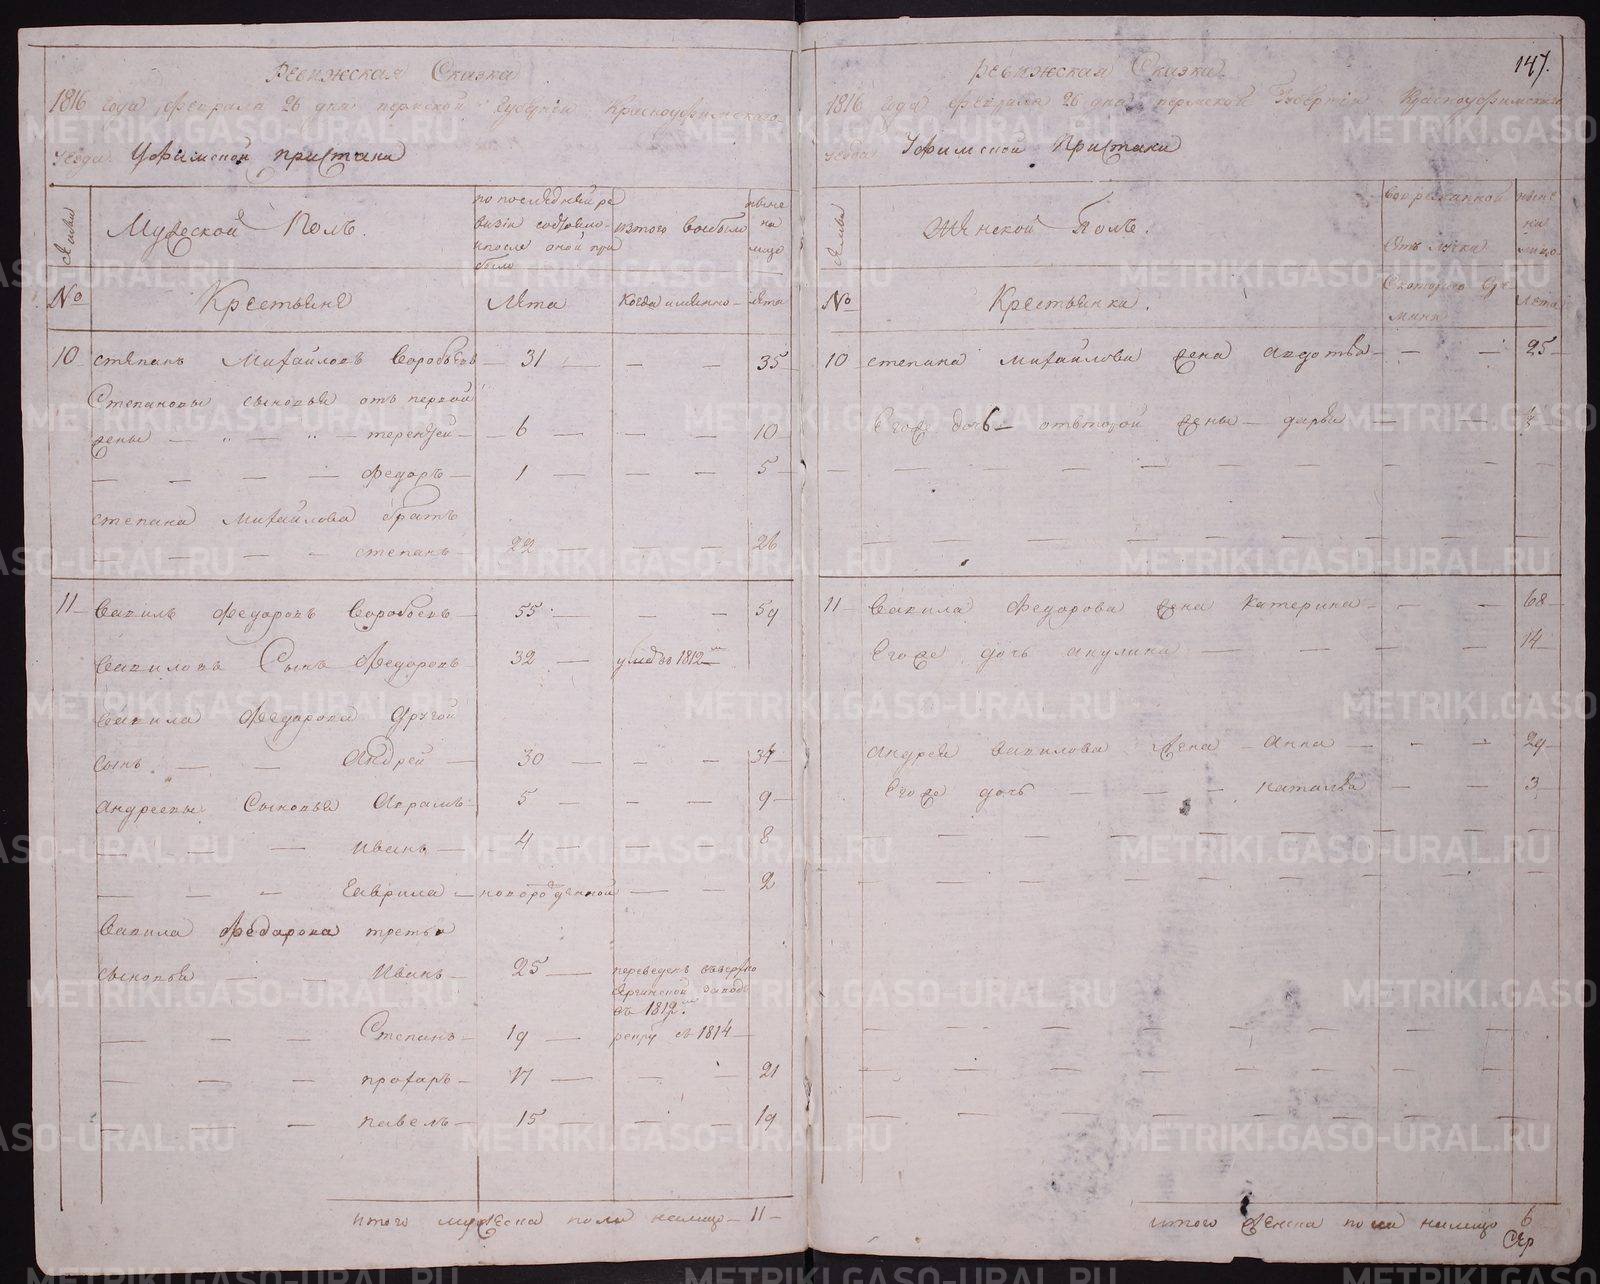 147.
Ревижская Сказка
1816 года февраля 26 дня пермской Губернiи Красноуфимскаго
уезда Уфимской пристани
Семьи
Мужеской Полъ.
по последней ре
визiи состояло
и после оной при
было
изтого выбыло
ныне
на
лицо
№
Крестьяне
Лета
когда именно
лета
10 степанъ Михайловъ Воробьевъ 31 — — — 35
Степановы сыновья отъ первой
жены — " — " — терентей — 6 — — — 10
— — — — Федоръ — 1 — — — 5
степана Михайлова братъ
— — — степанъ 22 — — — 26
11 Вавилъ Федоровъ Воробьевъ 55 — — — 59
Вавиловъ Сынъ Федоровъ 32 — умре въ 1812
Вавила Федорова другой
сынъ — — Андрей — 30 — — — 34
Андреевы Сыновья Аврамъ 5 — — — 9
— — — Иванъ — 4 — — — 8
— — — Гаврила — новорожденной — — 2
Вавила Федорова третьи
сыновья — — Иванъ 25 — переведенъ въверхно
Сергинской заводъ
въ 1812
— — — Степанъ 19 — рекру въ 1814
— — — прохаръ 17 — — — 21
— — — павелъ 15 — — — 19
итого мужеска пола налицо 11
Ревижская Сказка
1816 года февраля 26 дня пермской Губернiи Красноуфимскаго
уезда Уфимской Пристани
Семьи
Женской Полъ.
Отлучка
ныне
на
лицо
№
Крестьянки.
Скотораго вре
мяни
Лета
10 степана михайлова жена авдотья — — 25
Егоже дочь отвторой жены дарья — —
11 Вавила Федорова жена катерина — — 68
Егоже дочь акулина — — — — 14
Андрея вавилова жена Анна — — 29
Егоже дочь — — — наталья — — 3
итого женска пола налицо 6